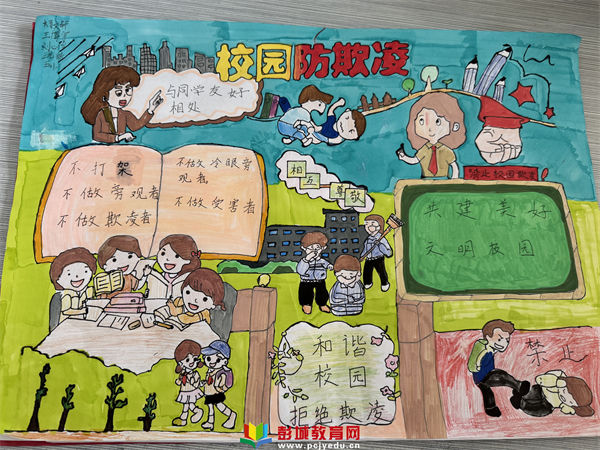 校园防欺凌
与同学友好
相处
不打架
不做旁观者
不做欺凌者
不做冷眼旁
观者
不做受害者
相互
尊敬
禁止校园欺凌!
共建美好
文明校园
和谐
校园
拒绝欺凌
禁止
彭城教育网
www.pcjyedu.cn